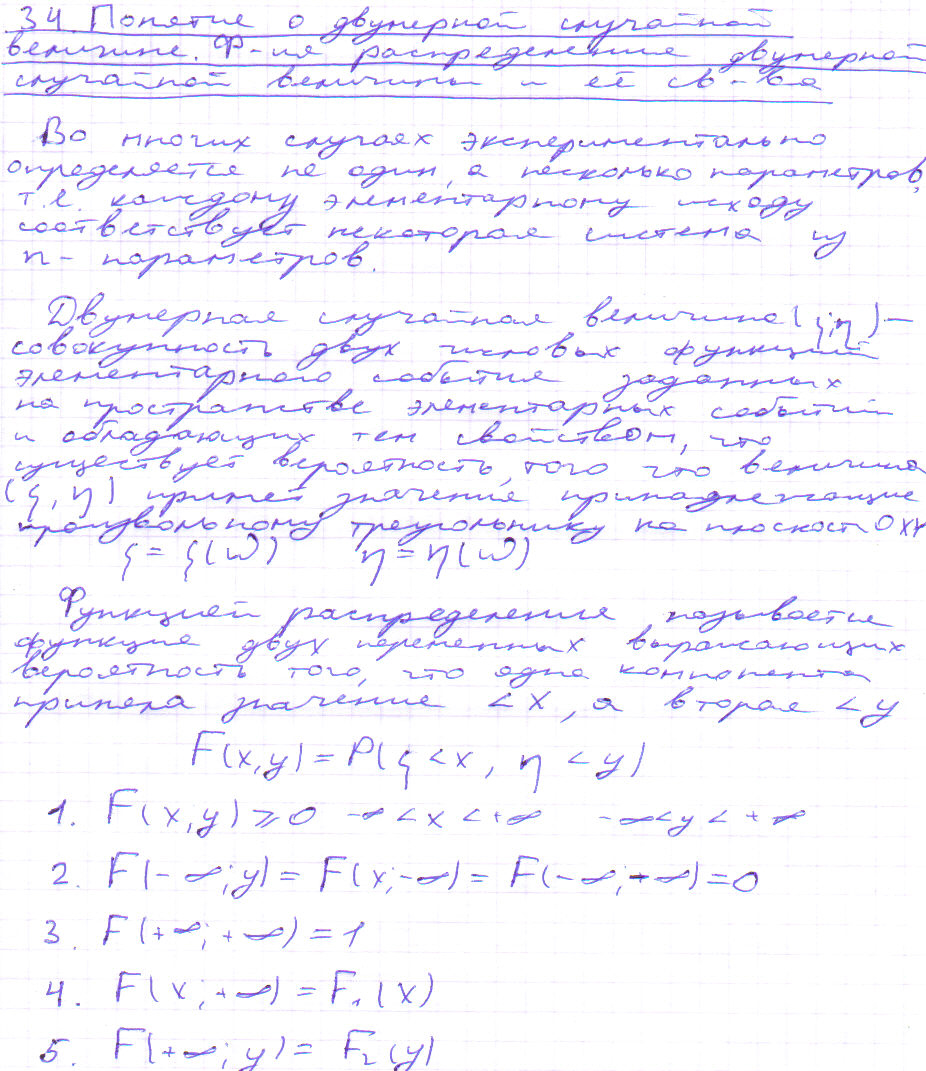 34. Понятие о двумерной случайной
величине. Ф-ия распределения двумерной
случайной величины и её св-ва
Во многих случаях экспериментально
определяется не один, а несколько параметров,
т.е. каждому элементарному исходу
соответствует некоторая система из
n - параметров.
Двумерная случайная величина (ξ;η) –
совокупность двух числовых функций
элементарного события заданных
на пространстве элементарных событий
и обладающих тем свойством, что
существует вероятность того что величина
(ξ, η) примет значение принадлежащие
произвольному треугольнику на плоскости OXY
ξ = ξ(ω) η = η(ω)
Функцией распределения называется
функция двух переменных выражающих
вероятность того, что одна компонента
приняла значение < X, а вторая < y
F(x,y) = P(ξ < x, η < y)
1. F(x,y) ⩾ 0 -∞ < x < +∞ -∞ < y < +∞
2. F(-∞;y) = F(x;-∞) = F(-∞;+∞) = 0
3. F(+∞;+∞) = 1
4. F(x;+∞) = F₁(x)
5. F(+∞;y) = F₂(y)